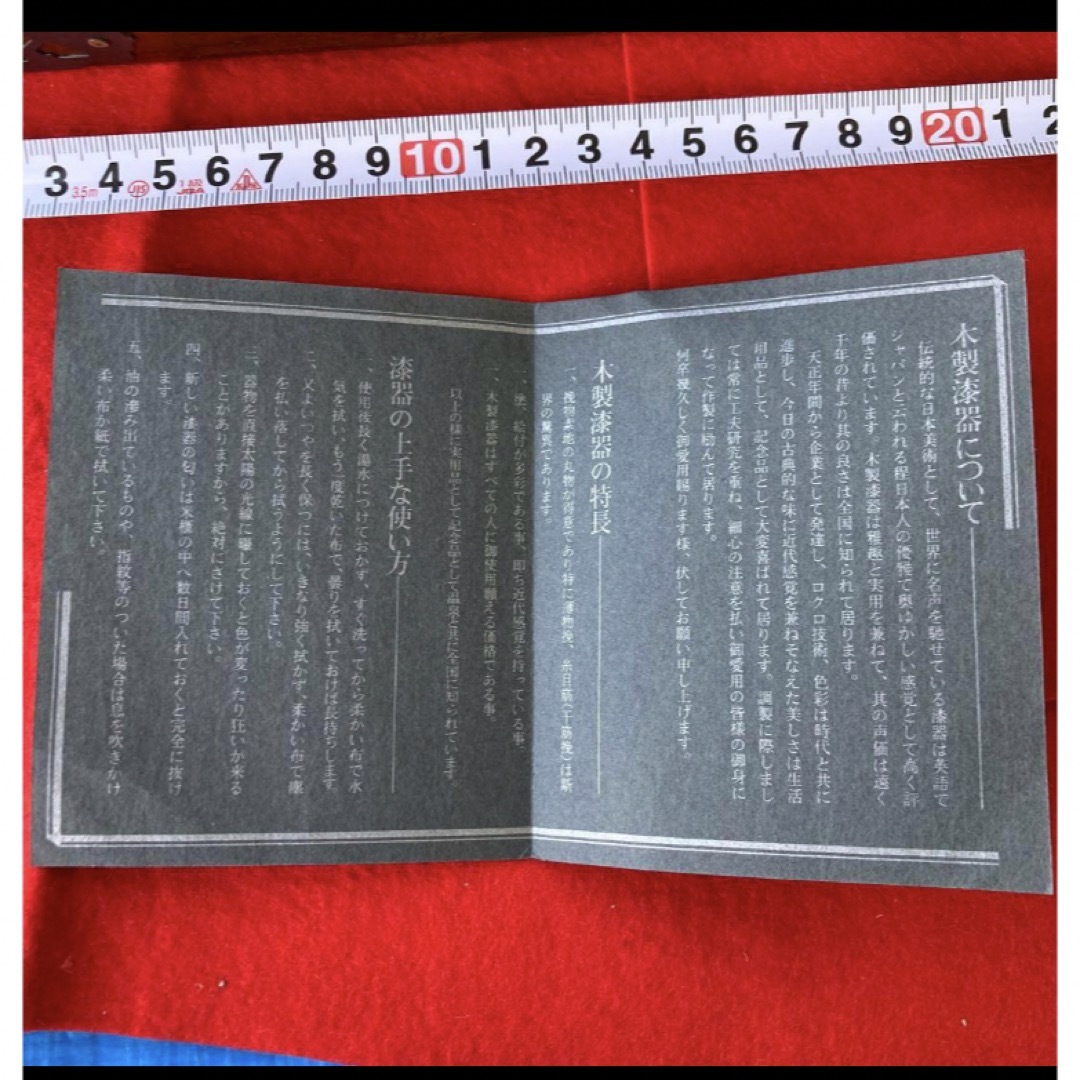 3 4 5 6 7 8 9 10 1 2 3 4 5 6 7 8 9 20 1 2
3.5m JIS 1級
木製漆器について
伝統的な日本美術として、世界に名声を馳せている漆器は英語で
ジャパンと云われる程日本人の優雅で奥ゆかしい感覚として高く評
価されています。木製漆器は雅趣と実用を兼ねて、其の声価は遠く
千年の昔より其の良さは全国に知られて居ります。
天正年間から企業として発達し、ロクロ技術、色彩は時代と共に
進歩し、今日の古典的な味に近代感覚を兼ねそなえた美しさは生活
用品として、記念品として大変喜ばれて居ります。調製に際しまし
ては常に工夫研究を重ね、細心の注意を払い御愛用の皆様の御身に
なって作製に励んで居ります。
何卒幾久しく御愛用賜ります様、伏してお願い申し上げます。
木製漆器の特長
一、挽物素地の丸物が得意であり特に薄物挽、糸目挽(千筋挽)は斯
界の驚異であります。
一、塗、絵付が多彩である事、即ち近代感覚を持っている事。
一、木製漆器はすべての人に御使用願える価格である事。
以上の様に実用品として記念品として温泉と共に全国に知られています。
漆器の上手な使い方
一、使用後長く湯水につけておかず、すぐ洗ってから柔かい布で水
気を拭い、もう一度乾いた布で、曇りを拭いておけば長持ちします。
二、又よいつやを長く保つには、いきなり強く拭かず、柔かい布で塵
を払い落してから拭うようにして下さい。
三、器物を直接太陽の光線に曝しておくと色が変ったり狂いが来る
ことがありますから、絶対にさけて下さい。
四、新しい漆器の匂いは米櫃の中へ数日間入れておくと完全に抜け
ます。
五、油の滲み出ているものや、指紋等のついた場合は息を吹きかけ
柔い布か紙で拭いて下さい。